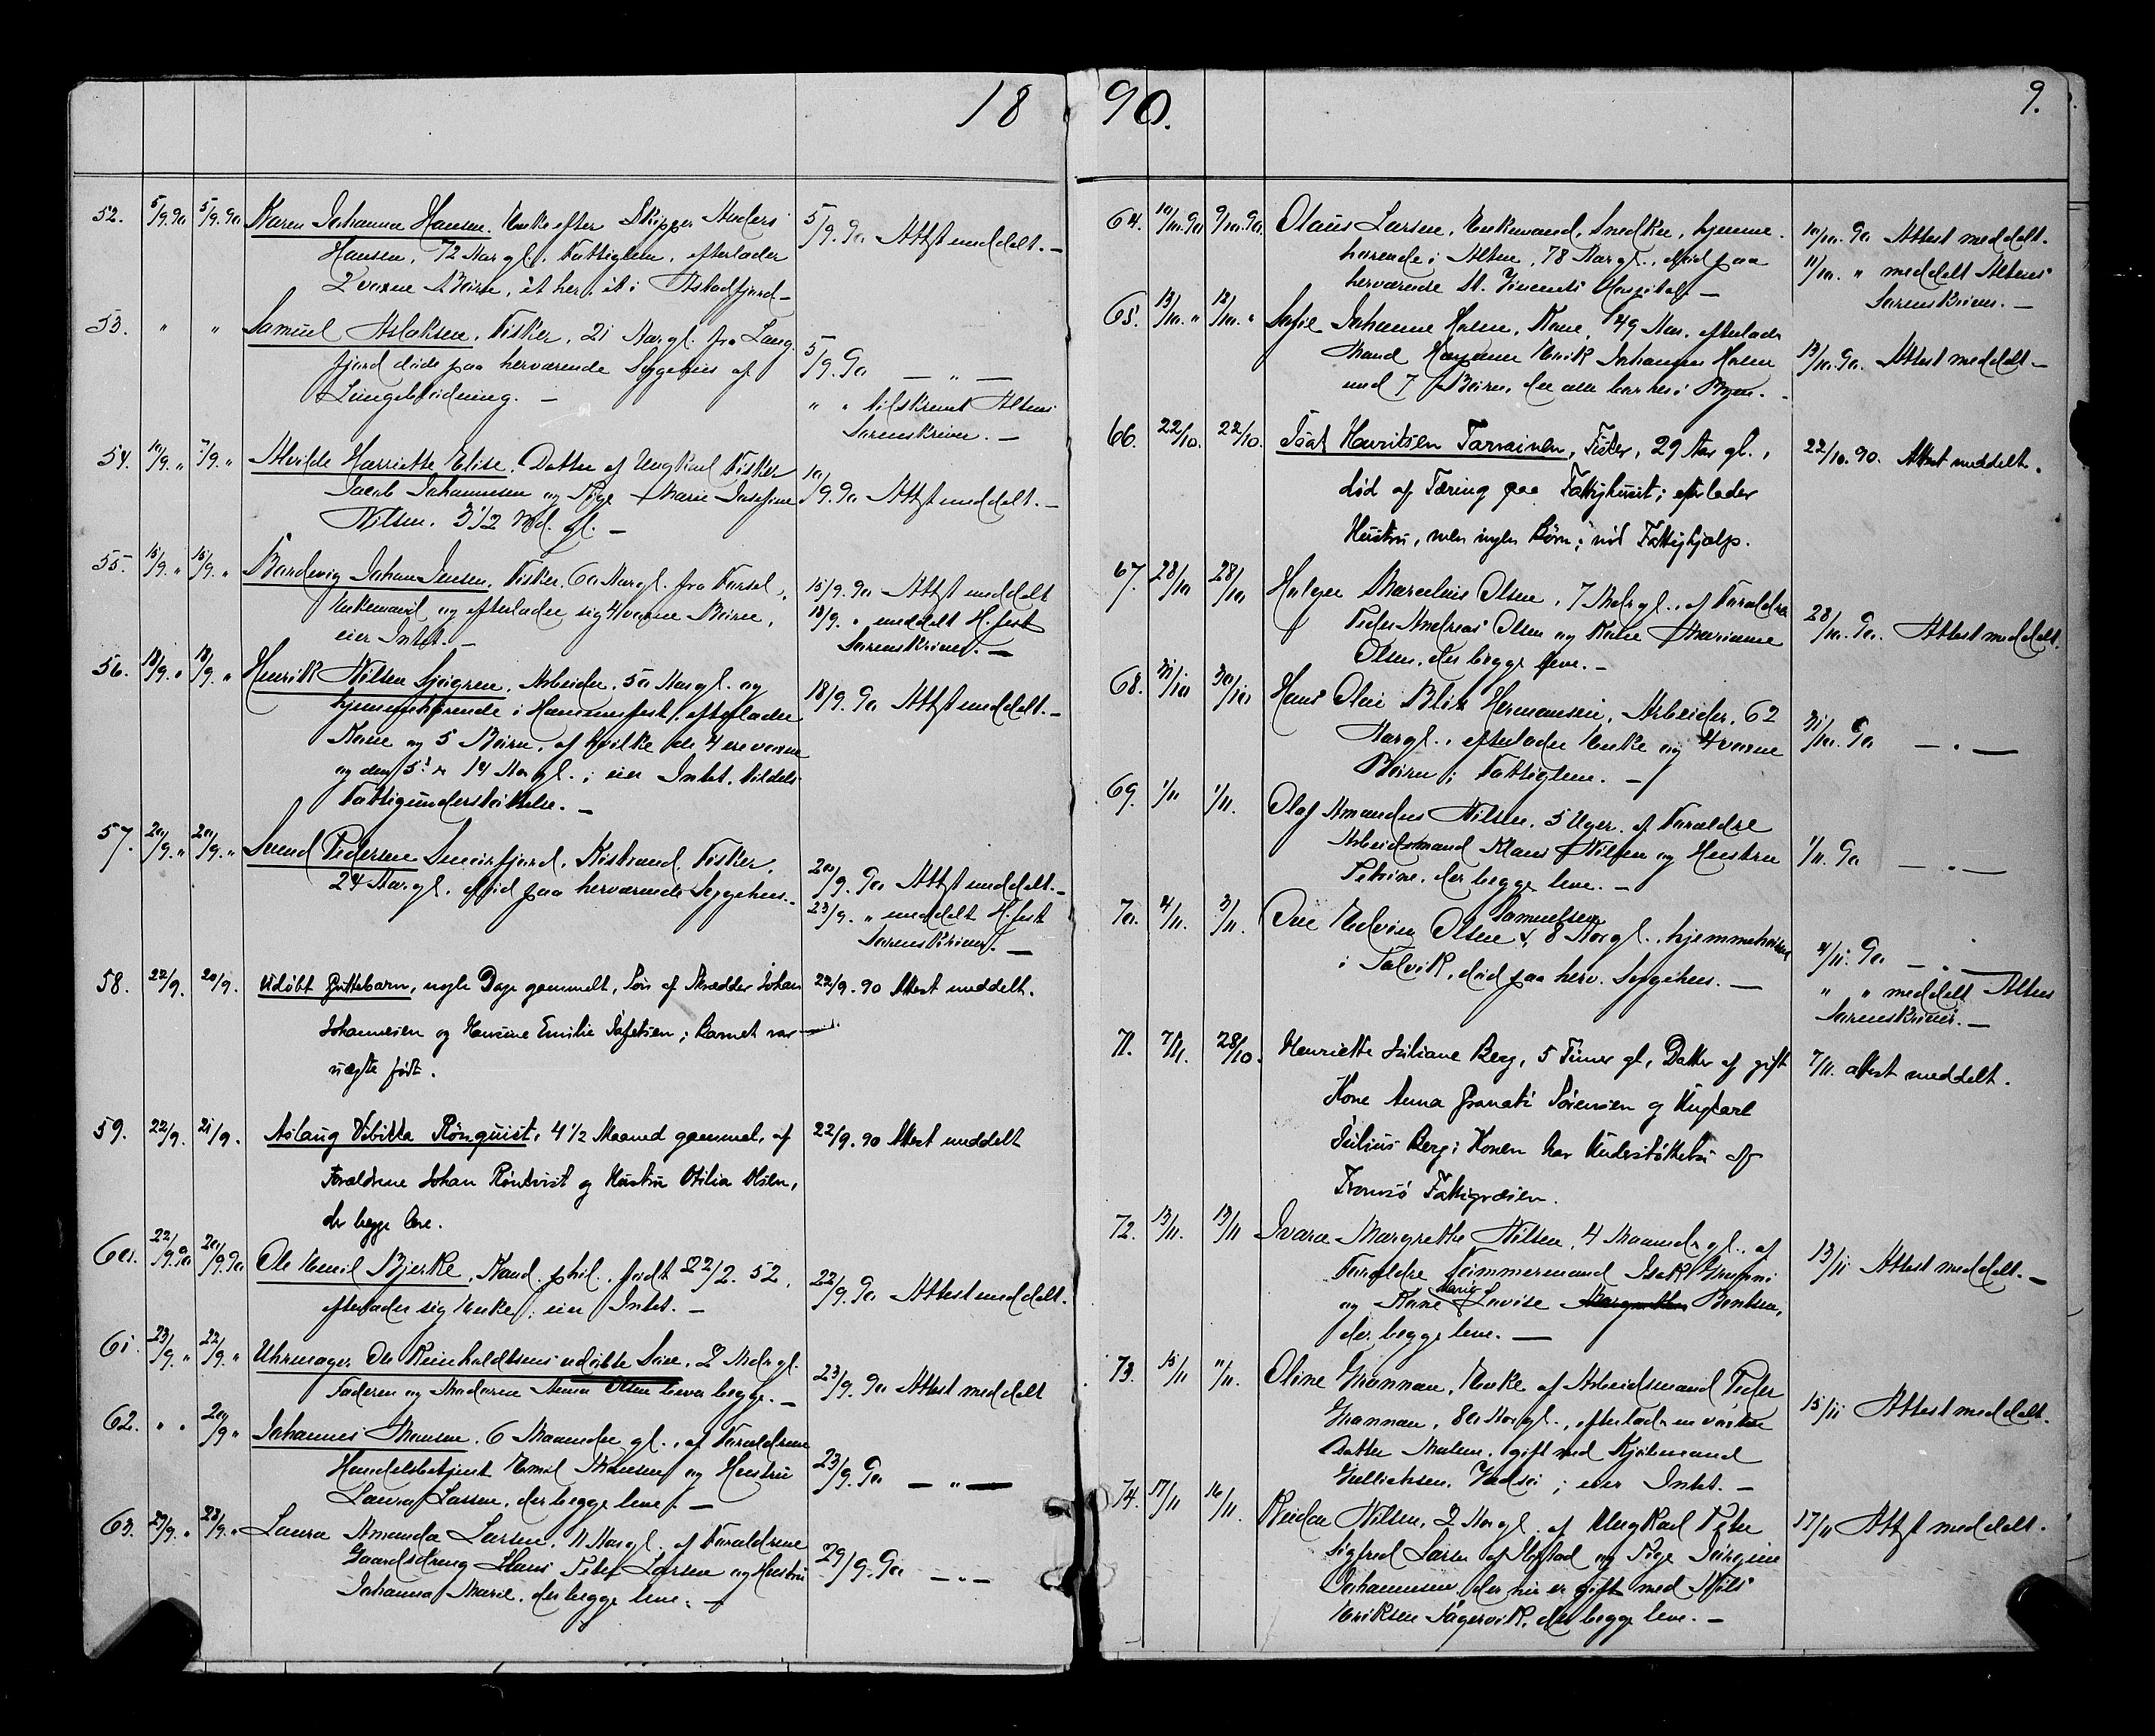 1890.
9.
52. 5/9.90 5/9.90 Karen Johanna Hansen. Enke efter Skipper Anders 5/9.90 Attest meddelt. —
Hansen, 72 Aar gl. Fattiglem, efterlader
2 voxne Børn, et her, et i Astadfjord —
53. " " Samuel Aslaksen, Fisker, 21 Aar gl. fra Lang-
fjord døde paa herværende Sygehus af 5/9.90 — " —
Lungebetændning. — " " tilskrevet Altens
Sorenskriver. —
54. 10/9. " 7/9. " Alvilde Harriette Elise. Datter af Ungkarl Fisker
Jacob Johannesen og Pige Marie Josefine 10/9.90 Attest meddelt. —
Nilsen. 3 1/2 Md. gl. —
55. 15/9. " 15/9. " Bardevig Johan Jensen. Fisker. 60 Aar gl. fra 15/9.90 Attest meddelt
Enkemand og efterlader sig 4 voxne Børn, 18/9. " meddelt H.fest
eier Intet. — Sorenskriver. —
56. 18/9. " 18/9. " Henrik Nilsen Sjøgren. Arbeider. 50 Aar gl. og
hjemmehørende i Hammerfest, efterlader 18/9.90 Attest meddelt. —
Kone og 5 Børn, af hvilke de 4 ere voxne
og den 5te 14 Aar gl.; eier Intet, tildels
Fattigunderstøttelse. —
57. 20/9. " 20/9. " Svend Pedersen Smørfjord, Kistrand. Fisker.
24 Aar gl. død paa herværende Sygehus. 20/9.90 Attest meddelt. —
23/9. " meddelt H.fest
Sorenskriver. —
58. 22/9. 20/9. Udøbt Guttebarn, nogle Dage gammelt, Søn af Skrædder Johan 22/9.90 Attest meddelt.
Johannesen og Hansine Emilie Tofeksen; Barnet var
uægte født.
59. 22/9. 21/9. Aslaug Vibikka Rönquist, 4 1/2 Maaned gammel, af 22/9.90 Attest meddelt
Forældrene Johan Rönkvist og Hustru Otilia Olsen,
der begge leve.
60. 22/9.90 20/9.90 Ole Emil Bjerke, Kand. phil., født 22/2. 52, 22/9.90 Attest meddelt.
efterlader sig Enke; eier Intet. —
61. 23/9. " 22/9. " Uhrmager Ole Reinholdtsens udøbte Søn. 2 Mdr gl.
Faderen og Moderen Anna Olsen lever begge. — 23/9.90 Attest meddelt
62. " " 20/9 " Johannes Monsen. 6 Maaneder gl., af Forældrene
Handelsbetjent Emil Monsen og Hustru 23/9.90 — " —
Laura Larsen, der begge leve. —
63. 29/9. " 28/9. " Laura Amanda Larsen, 11 Aar gl. af Forældrene
Gaardsdreng Hans Peter Larsen og Hustru 29/9.90 — " —
Johanna Marie, der begge leve. —
64. 10/10.90 9/10.90. Olaus Larsen, Enkemand, Snedker, hjemme- 10/10.90 Attest meddelt.
hørende i Alten, 78 Aar gl., død paa 11/10. " meddelt Altens
herværende St. Vincents Hospital — Sorenskriver. —
65. 13/10. " 12/10. " Sofie Johanne Holm, Kone, 49 Aar, efterlader
Mand Erik Johansen Holm 13/10.90. Attest meddelt —
med 7 Børn, der alle bor her i Byen.
66. 22/10. 22/10. Isak Henriksen Tarvainen, Fisker, 29 Aar gl., 22/10.90. Attest meddelt.
død af Tæring paa Fattighuset; efterlader
Hustru, men ingen Børn; nød Fattighjælp.
67. 28/10 28/10 Holger Marcelius Olsen, 7 Mdr gl., af Forældre
Peder Andreas Olsen og Kone Marianne 28/10.90. Attest meddelt.
Olsen, der begge leve. —
68. 31/10 30/10 Hans Olai Blix Hermansen, Arbeider, 62
Aar gl., efterlader Enke og 4 voxne 31/10.90 — " —
Børn; Fattiglem. —
69. 1/11 1/11. Olaf Amandus Nilsen. 5 Uger. af Forældre
Arbeidsmand Klaus Nilsen og Hustru 1/11.90 — " —
Petrine, der begge leve. —
70. 4/11. 3/11. Ole Edvin Olsen Samuelsen, 8 Aar gl., hjemmehørende 4/11.90 — " —
i Talvik, død paa herv. Sygehus. — " " meddelt Altens
Sorenskriver. —
71. 7/11. 28/10. Henriette Juliane Berg, 5 Timer gl., Datter af gift 7/11. Attest meddelt.
Kone Anna Granati Sørensen og Ungkarl
Julius Berg; Konen har Understøttelse af
Tromsø Fattigvæsen.
72. 13/11. 13/11 Ivara Margrethe Nilsen, 4 Maaneder gl., af
Forældre Tømmermand Isak 13/11 Attest meddelt. —
og Kone Marie Lovise Margrethe Bentsen,
der begge leve. —
73. 15/11 11/11. Oline Grannan, Enke af Arbeidsmand Peder
Grannan, 80 Aar gl., efterlader en voxen 15/11 Attest meddelt.
Datter Malene, gift med Kjøbmand
Gullichsen, Vadsø; eier Intet. —
74. 17/11 16/11. Reidar Nilsen, 2 Aar gl. af Ungkarl Peter 17/11 Attest meddelt.
Sigfred Larsen af og Pige Jørgine
Johannesen, der nu er gift med Nils
Eriksen Fagervik, der begge leve. —